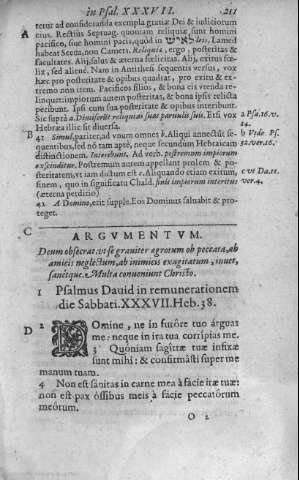 in Psal. XXXVII. 211
tetur ad consideranda exempla gratiæ Dei & iudiciorum
A eius. Rectius Septuag. quoniam reliquiæ sunt homini
pacifico, siue homini pacis, quòd in לאיש leis, Lamed
habeat Sceua, non Camets. Reliquia, ergo, posteritas &
facultates. Alij, salus & æterna felicitas. Alij, exitus fœ-
lix, sed alienè. Nam in Antithesi sequentis versus, vox
hæc pro posteritate & opibus quadrat, pro exitu & ex-
tremo non item. Pacificos filios, & bona eis vtenda re-
linquet: impiorum autem posteritas, & bona ipsis relicta
peribunt. Ipsi cum sua posteritate & opibus interibunt.
Sic suprà a. Dimiserūt reliquias suas paruulis suis. Etsi vox
Hebræa illîc sit diuersa.
a Psa. 16. v.
14.
B 41 Simul, pariter, ad vnum omnes b. Aliqui annectūt se-
quentibus, sed nō tam aptè, neque secundum Hebraicam
distinctionem. Interibunt. Ad verb. postremum impiorum
exscinditur. Postremum autem appellant prolem & po-
steritatem, vt iam dictum est c. Aliquando etiam exitum,
finem, quo in significatu Chald. finis impiorum interitus
(æterna perditio)
b Vide Ps.
32. ver. 16.
c vt Da. 11.
ver. 4.
42 A Domino, erit: supple. Eos Dominus saluabit & pro-
teget.
C
ARGVMENTVM.
Deum obsecrat, vt se grauiter ægrotum ob peccata, ab
amicis neglectum, ab inimicis exagitatum, iuuet,
sanétque. Multa conueniunt Christo.
1 Psalmus Dauid in remunerationem
die Sabbati. XXXVII. Heb. 38.
D 2 DOmine, ne in furóre tuo árguas
me: neque in ira tua corrípias me.
3 Quoniam sagíttæ tuæ infíxæ
sunt mihi: & confirmásti super me
manum tuam.
4 Non est sánitas in carne mea à fácie iræ tuæ:
non est pax óssibus meis à fácie peccatórum
meórum.
O 2